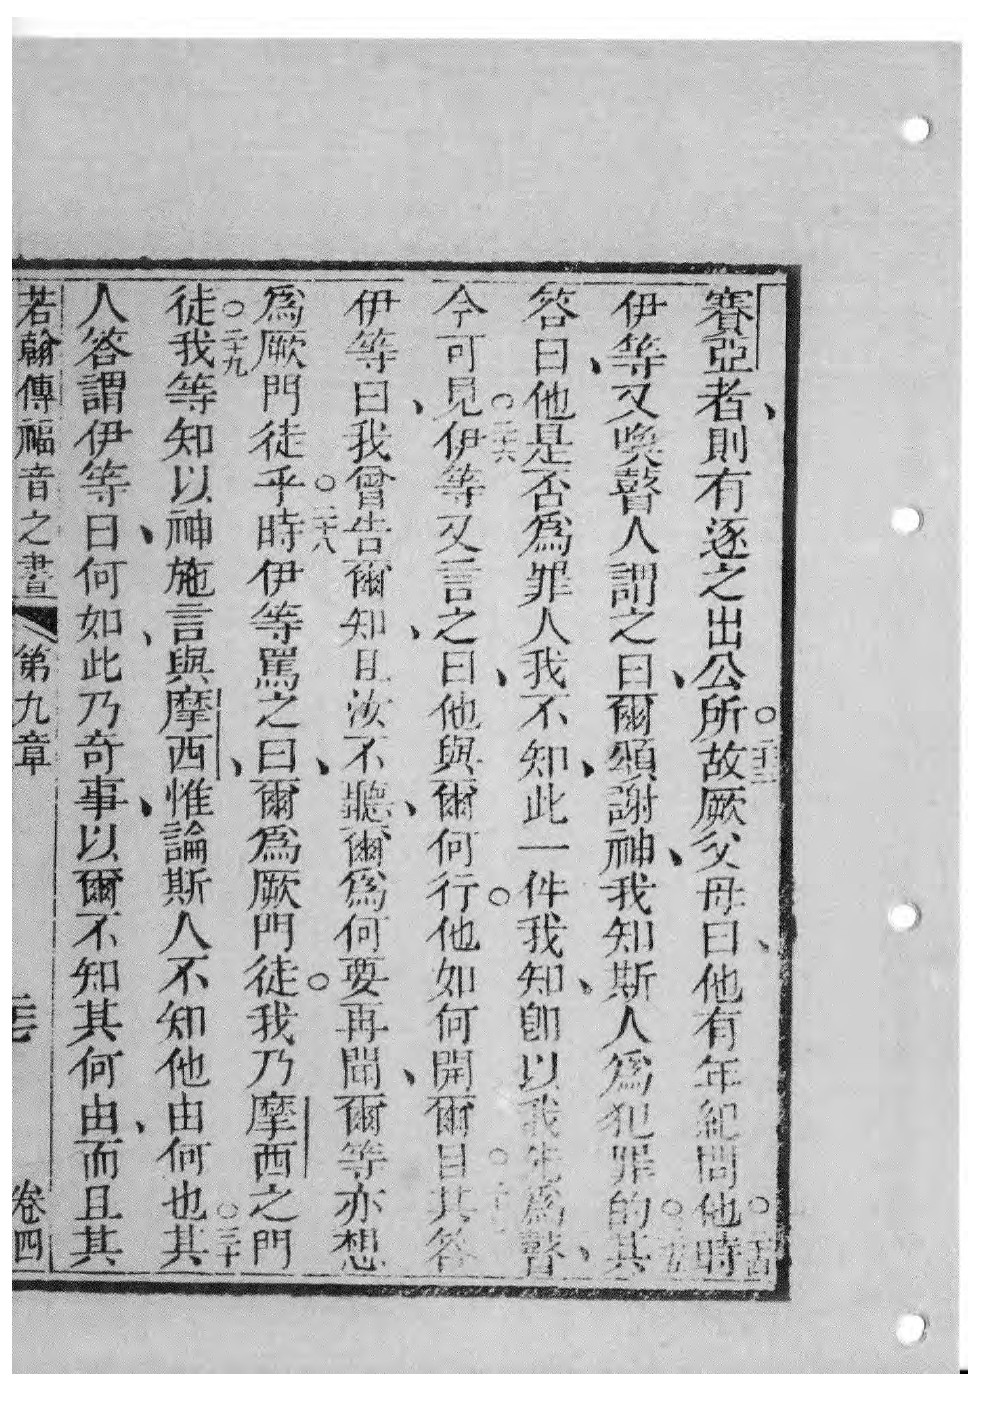 賽亞者、則有逐之出公所○二十三故厥父母曰、他有年紀問他○二十四時
伊等又喚瞽人謂之曰、爾頌謝神、我知斯人爲犯罪的○二十五其
答曰、他是否爲罪人我不知、此一件我知、卽以我先爲瞽、
今可見○二十六伊等又言之曰、他與爾何行○他如何開爾目○其答
伊等曰、我曾告爾知、且汝不聽、爾爲何要再聞、爾等亦想
爲厥門徒乎○二十八時伊等罵之曰、爾爲厥門徒○我乃摩西之門
徒○二十九我等知以神施言與摩西、惟論斯人不知他由何也○三十其
人答謂伊等曰、何如此、乃奇事、以爾不知其何由、而且其
若翰傳福音之書 第九章 卷四